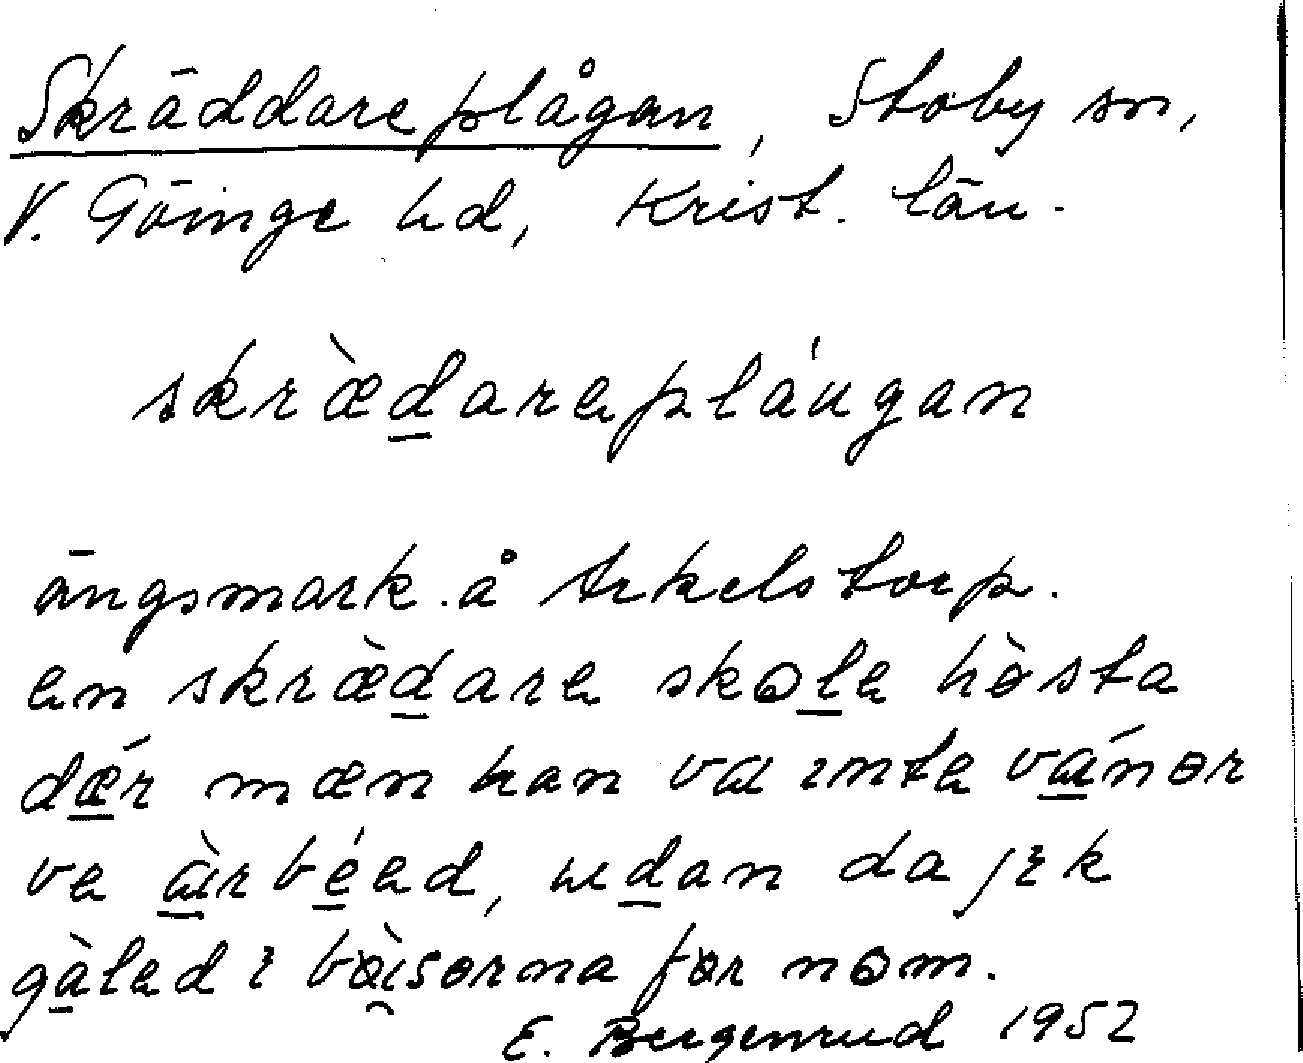 Skräddareplågan, Stoby sn,
V. Göinge hd, Krist. län.
skræ̀d̲arepláugan
ängsmark å Arkelstorp.
en skræ̀d̲are skol̲e hòsta
dǽ̲r mæn han va ınte vá̲nor
ve à̲rbé̲ed, ud̲an da jık
gà̲led ı bàısorna for nom.
E. Bergenrud 1952